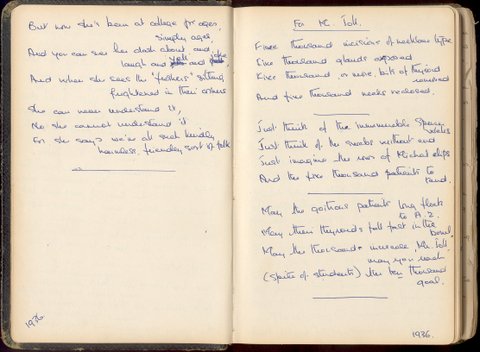 But now she's been at college for ages,
simply ages,
And you can see her dash about and
laugh and and joke
And when she sees the "freshers" sitting
frightened in their corners
She can never understand it,
No she cannot understand it
For she says we're all such kindly
harmless, friendly sort of folk
1936.
For Mr. Joll.
Five thousand incisions of necklace type
Five thousand glands exposed
Five thousand, or more, bits of thyroid
removed
And five thousand necks reclosed.
Just think of the innumerable Spencer
Wells
Just think of the swabs without end
Just imagine the rows of Michel clips
And the five thousand patients to
tend.
May the goitrous patients long flock
to A.2.
May their thyroids fall fast in the
bowl
May the thousands increase, Mr. Joll,
may you reach
(Spite of students) the ten thousand
goal.
1936.